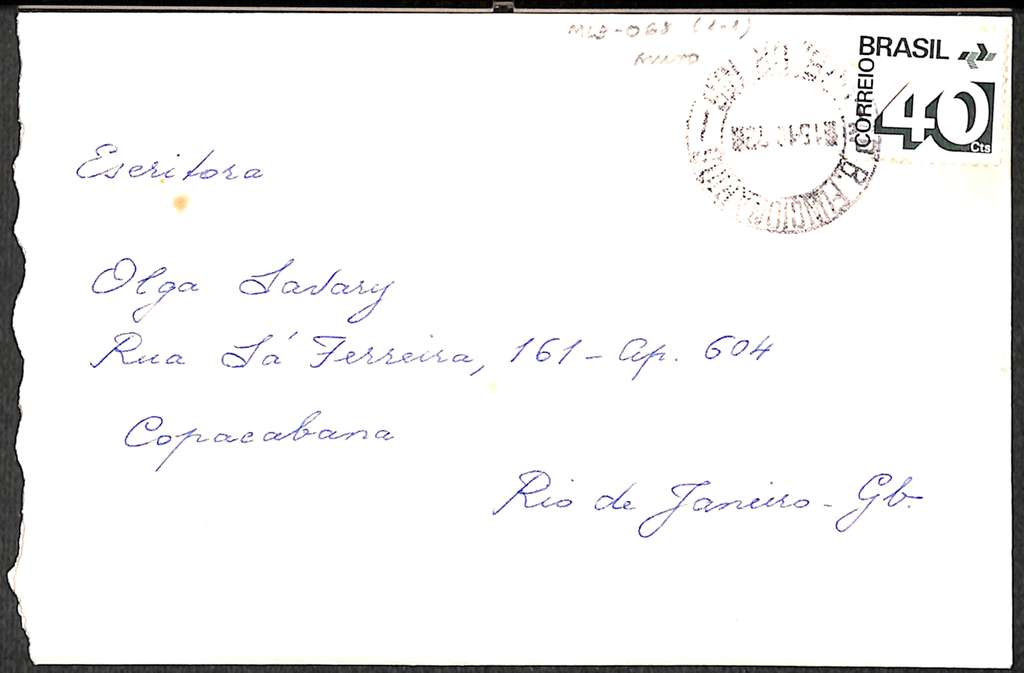 BRASIL
CORREIO
40
Cts
Escritora
Olga Savary
Rua Sá Ferreira, 161 - Ap. 604
Copacabana
Rio de Janeiro - Gb.